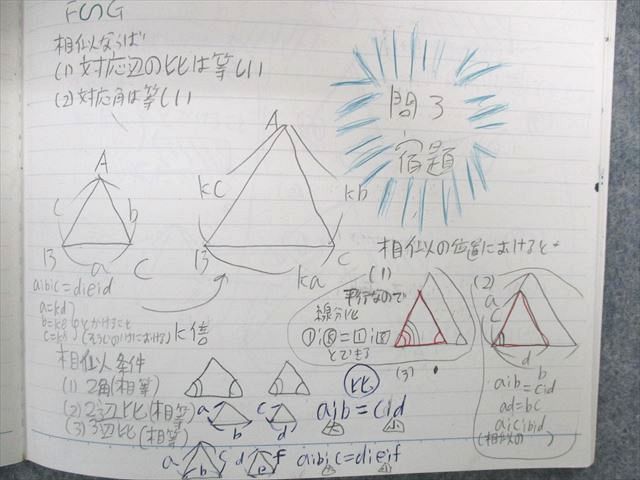 F∽G
相似ならば
(1) 対応辺の比は等しい
(2) 対応角は等しい
問3
宿題
A
c
b
B
a
C
A
kc
kb
B
ka
C
a:b:c=d:e:f
a=kd
b=ke
k倍
相似の位置における
(1)
平行なので
線分比
とできる
(3)
(2)
a
c
d
b
a:b=c:d
ad=bc
a:c=b:d
(相似の )
相似条件
(1) 2角(相等)
(2) 2辺比(相等)
(3) 3辺比(相等)
比
a
b
c
d
a:b=c:d
a
b
c
d
e
f
a:b:c=d:e:f